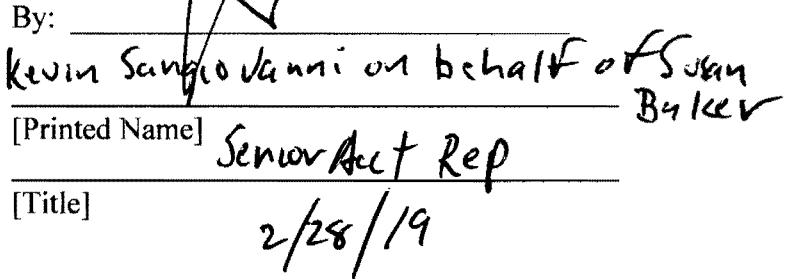 By:
Kevin Sangiovanni on behalf of Susan
Baker
[Printed Name]
Senior Acct Rep
[Title]
2/28/19